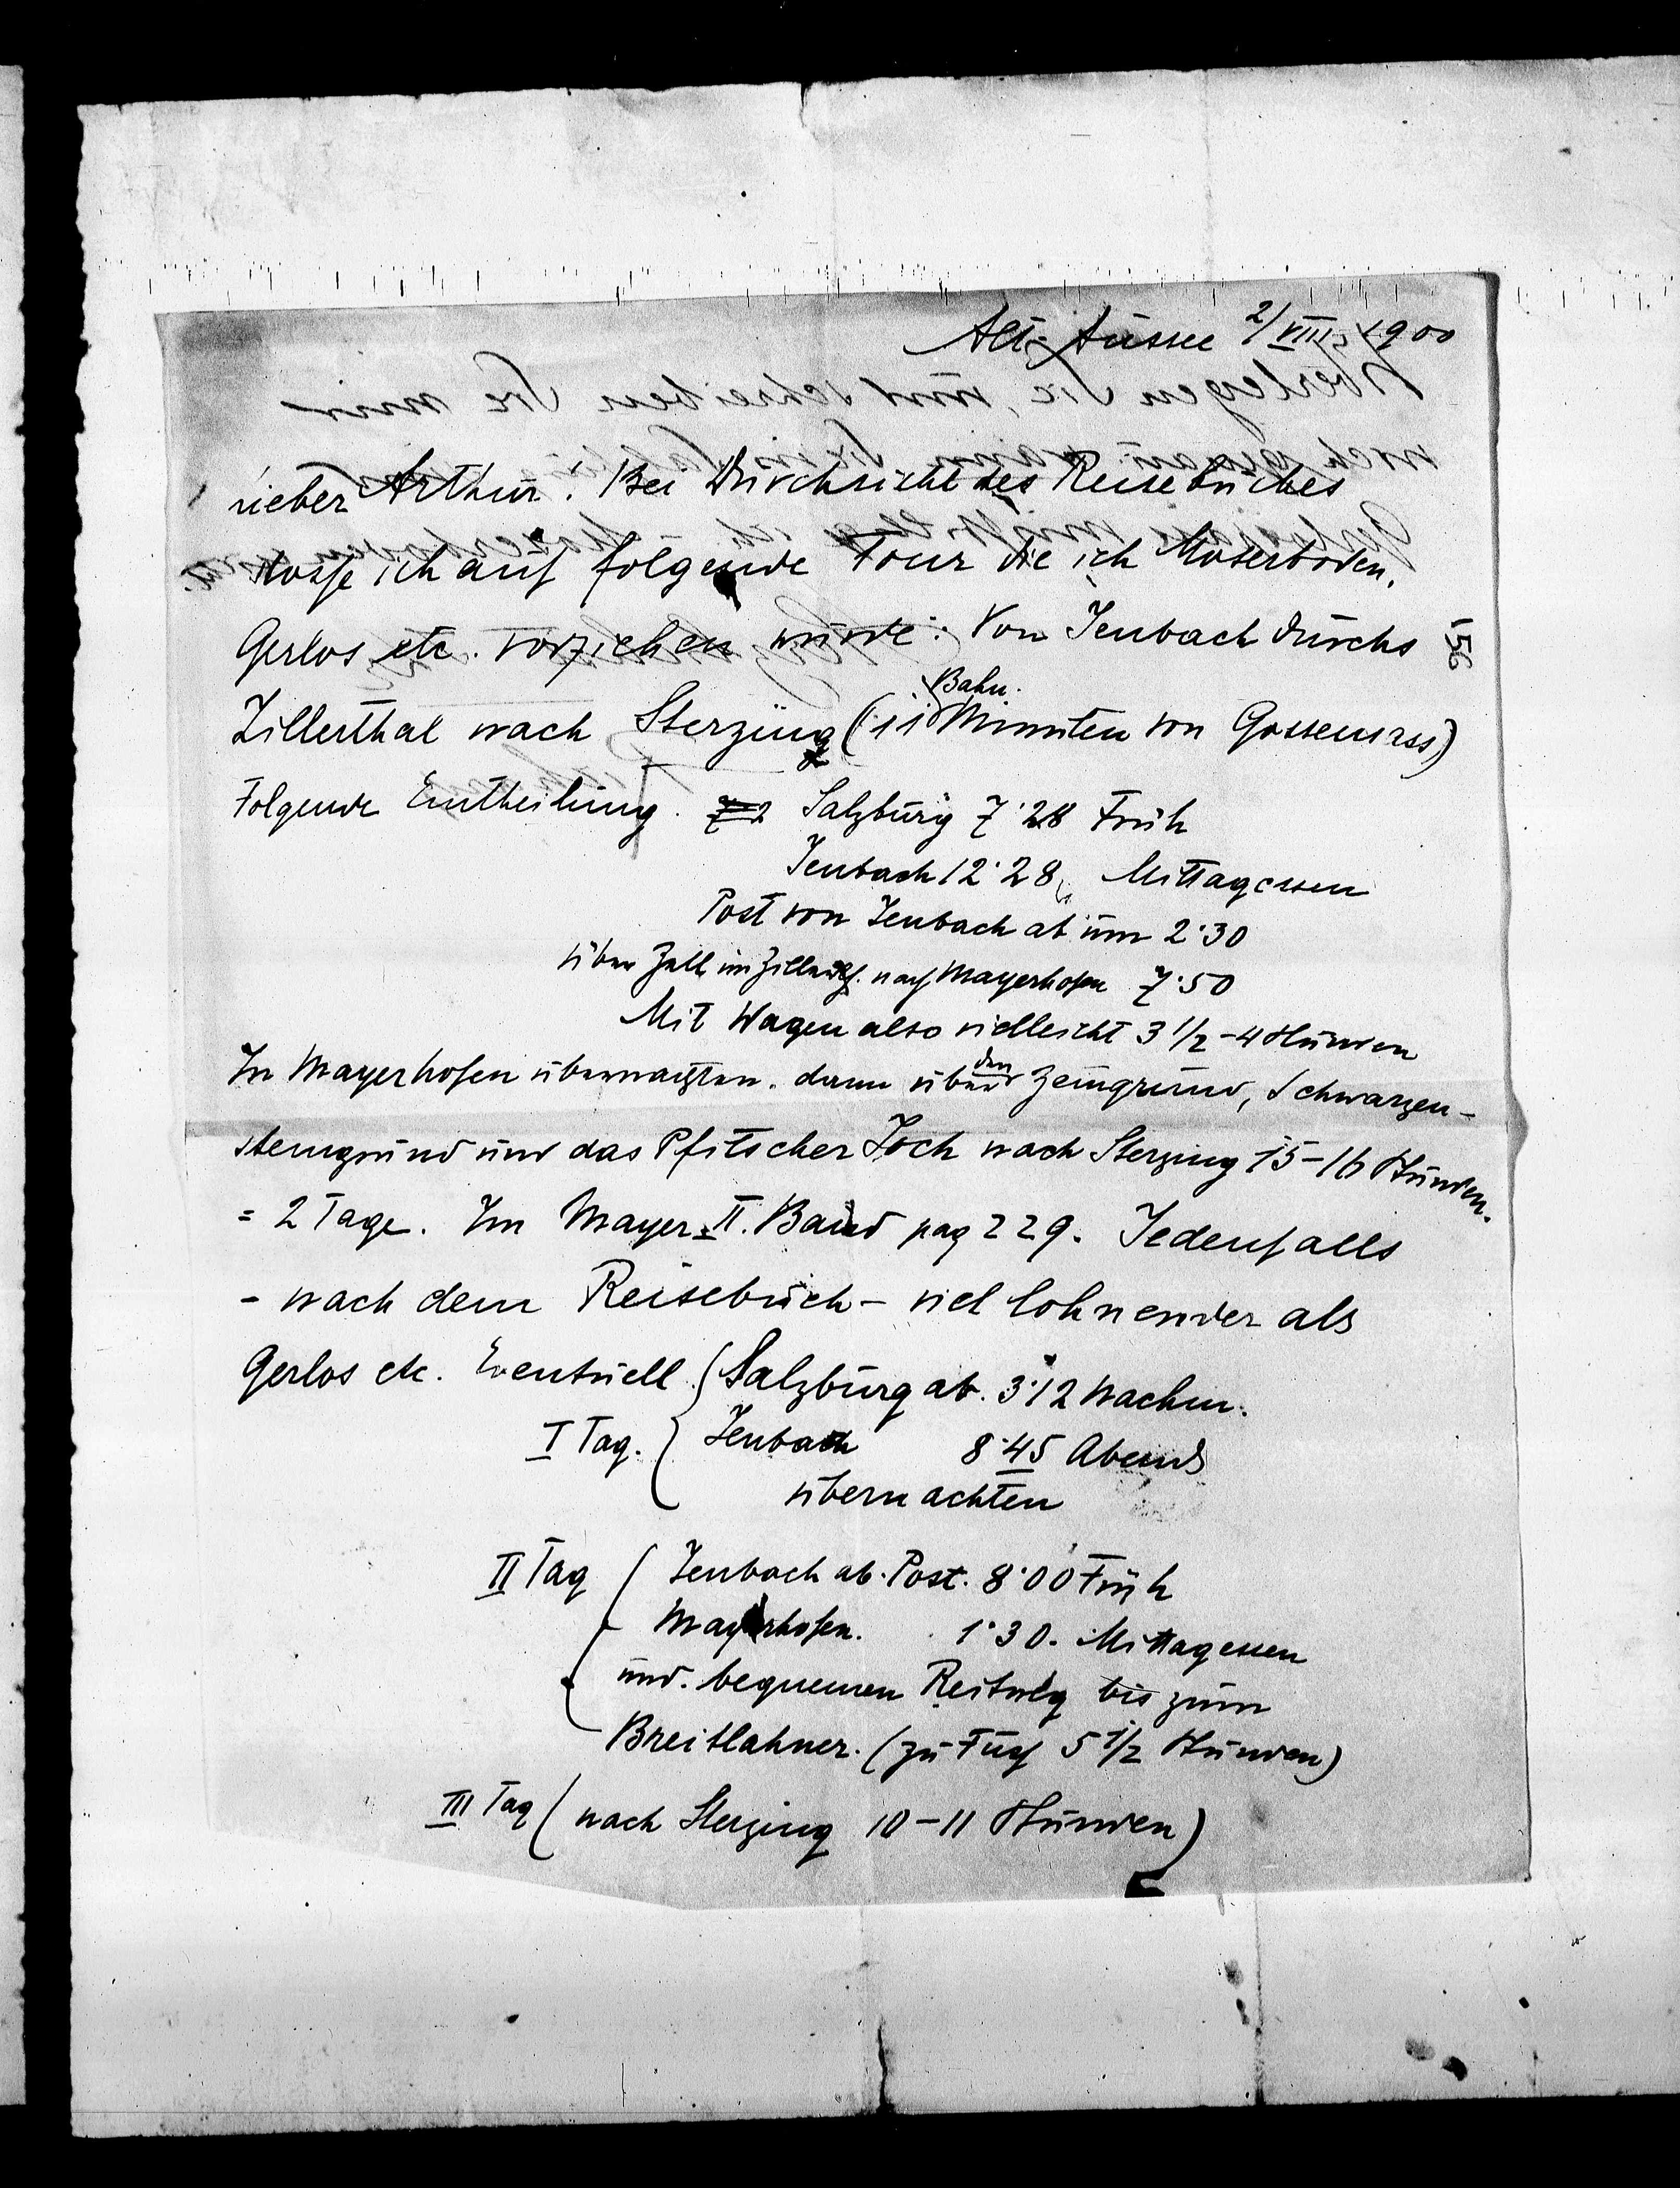 Alt-Aussee 2/VIII 1900
156
lieber Arthur. Bei Durchsicht des Reisebuches
stosse ich auf folgende Tour die ich Moserboden,
Gerlos etc. vorziehen würde: Von Jenbach durchs
Zillerthal nach Sterzing (11 Bahn. Minuten von Gossensass)
Folgende Eintheilung. Salzburg 7·28 Früh
Jenbach 12·28, Mittagessen
Post von Jenbach ab um 2·30
über Zell im Zillerth. nach Mayerhofen 7·50
Mit Wagen also vielleicht 3 1/2 – 4 Stunden
In Mayerhofen übernachten. dann über den Zemgrund, Schwarzen-
steingrund und das Pfitscher Joch nach Sterzing 15–16 Stunden.
= 2 Tage. Im Mayer II. Band pag 229. Jedenfalls
– nach dem Reisebuch – viel lohnender als
Gerlos etc. Eventuell (Salzburg ab. 3·12 Nachm.
I Tag. Jenbach 8·45 Abends
übernachten
II Tag ( Jenbach ab. Post. 8·00 Früh
Mayerhofen. 1·30. Mittagessen
und. bequemen Reitweg bis zum
Breitlahner. (zu Fuß 5 1/2 Stunden)
III Tag ( nach Sterzing 10–11 Stunden)